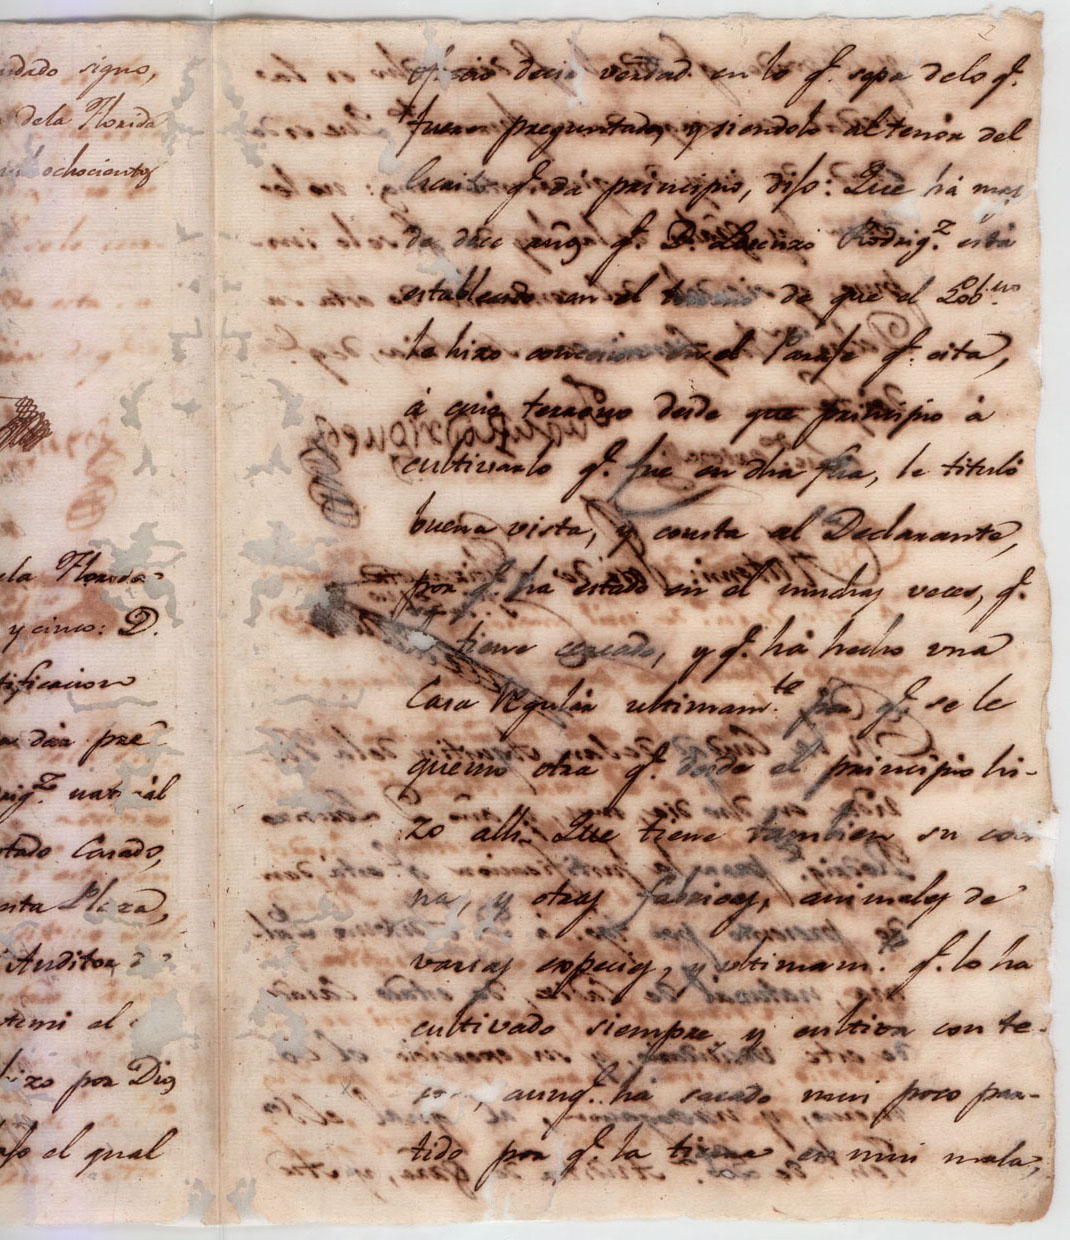 ndado signo,
dela Florida
ochocientos
ela Florida
y cinco: D.
tificacion
dar pre
rig.z natural
stado Casado,
esta Plaza,
Auditor
temi el
hizo por Dios
el qual
2
ofrecio decir verdad en lo q.e sepa delo q.e
fuere preguntado, y siendolo al tenor del
Escrito q.e dá principio, dijo: Que há mas
de doce años q.e D.n Lorenzo Rodrig.z está
establecido en el terreno de que el Gob.no
le hizo concecion en el Paraje q.e cita,
á cuio terreno desde que principio á
cultivarlo q.e fue en dha fha, le tituló
buena vista, y consta al Declarante,
por q.e ha estado en el muchas veces, q.e
tiene cercado, y q.e há hecho una
Casa regular ultimam.te por q.e se le
quemo otra q.e desde el principio hi-
zo alli. Que tiene tambien su coci
na, y otras fabricas, animales de
varias especies, y ultimam.te q.e lo ha
cultivado siempre, y cultiva con te-
aunq.e ha sacado mui poco par-
tido por q.e la tierra es mui mala,